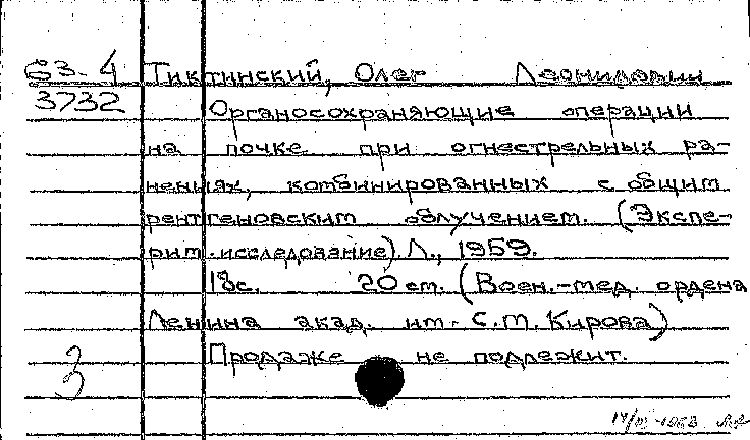 63-4 Тиктинский, Олег Леонидович
3732 Органосохраняющие операции
на почке при огнестрельных ра-
нениях, комбинированных с общим
рентгеновским облучением. (Экспе-
рим. исследование). Л., 1959.
18с. 20 см. (Воен.-мед. ордена
Ленина акад. им. С.М. Кирова)
Продаже не подлежит.
3